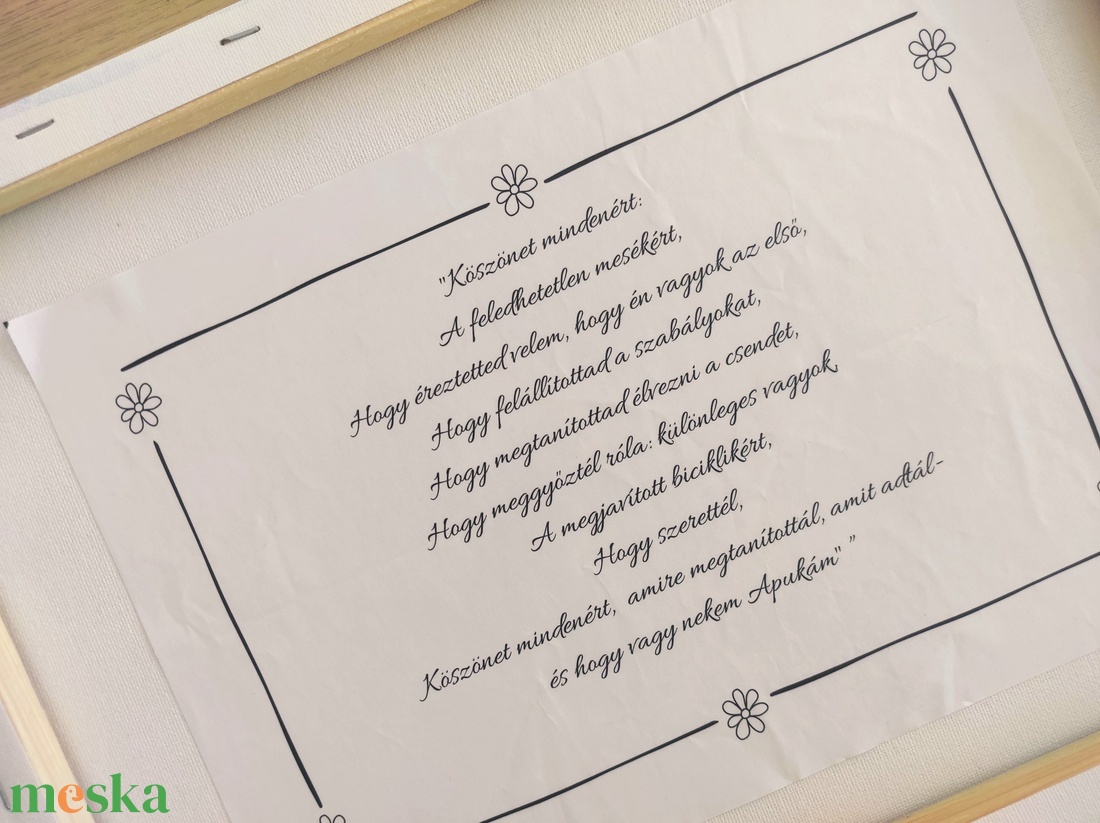 "Köszönet mindenért:
A feledhetetlen mesékért,
Hogy éreztetted velem, hogy én vagyok az első,
Hogy felállítottad a szabályokat,
Hogy megtanítottad élvezni a csendet,
Hogy meggyőztél róla: különleges vagyok,
A megjavított biciklikért,
Hogy szerettél,
Köszönet mindenért, amire megtanítottál, amit adtál-
és hogy vagy nekem Apukám" "
meska